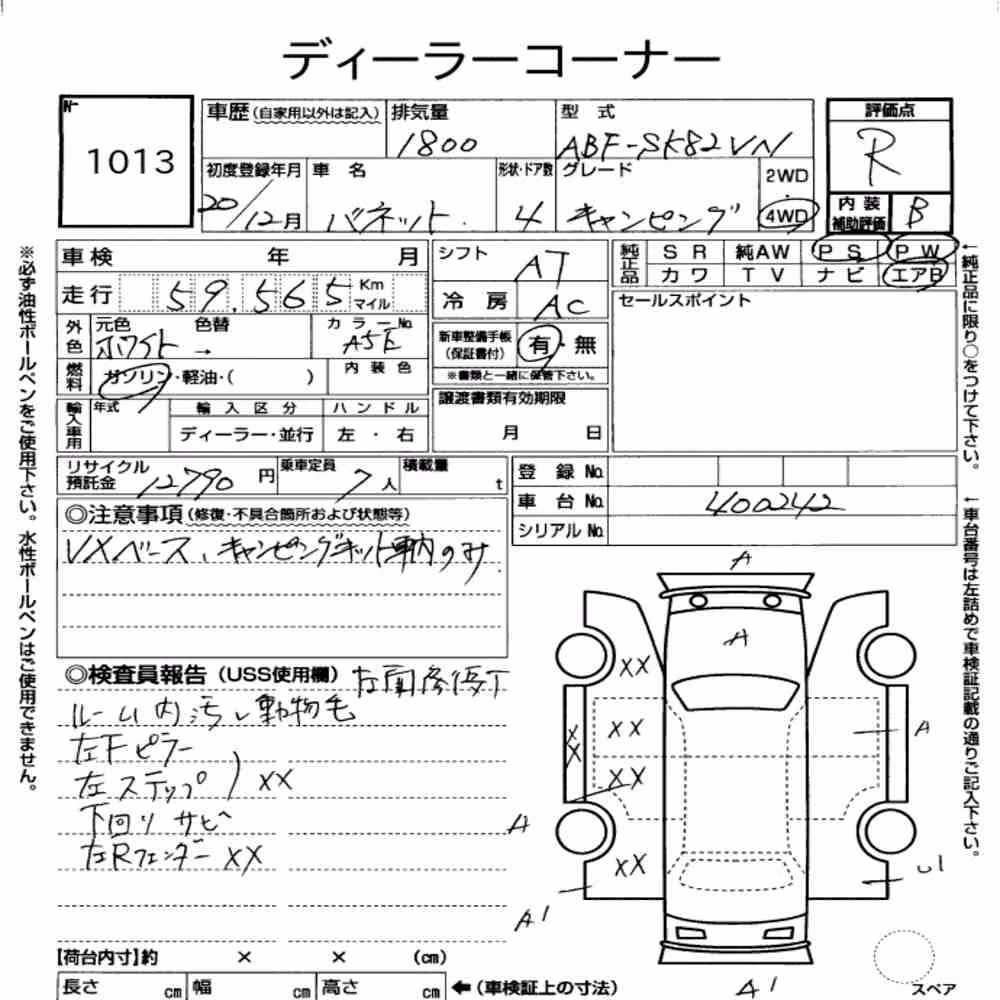 ディーラーコーナー
No
1013
車歴(自家用以外は記入) 排気量 型 式
1800 ABF-SK82VN
初度登録年月 車 名 形状・ドア数 グレード 2WD ・ 4WD
20/12月 バネット. 4 キャンピング
評価点
R
内 装 補助評価 B
車検 年 月
走行 59,565 Km マイル
外色 元色 色替 カラーNo.
ホワイト → A5E
燃料 ガソリン・軽油・( ) 内 装 色
輸入車用 年式 輸 入 区 分 ハ ン ド ル
ディーラー・並行 左 ・ 右
シフト AT
冷 房 AC
新車整備手帳 (保証書付) 有・無
※書類と一緒に保管下さい。
譲渡書類有効期限
月 日
純正品 S R 純AW P S P W
カ ワ T V ナ ビ エアB
セールスポイント
←純正品に限り○をつけて下さい。
リサイクル預託金 12790 円 乗車定員 7 人 積載量 t
登 録 No.
車 台 No. 400242
シリアル No.
◎注意事項(修復・不具合箇所および状態等)
VXベース、キャンピングキット車内のみ
◎検査員報告(USS使用欄) 左肩修復丁
ルーム内汚レ動物毛
左Fピラー
左ステップ ) XX
下回りサビ
左Rフェンダー XX
A
A
XX
XX
XX
XX
XX
A
A
A1
U1
A1
スペア
【荷台内寸】約 × × (cm)
長さ cm 幅 cm 高さ cm ←(車検証上の寸法)
※必ず油性ボールペンをご使用下さい。水性ボールペンはご使用できません。
←車台番号は左詰めで車検証記載の通りご記入下さい。